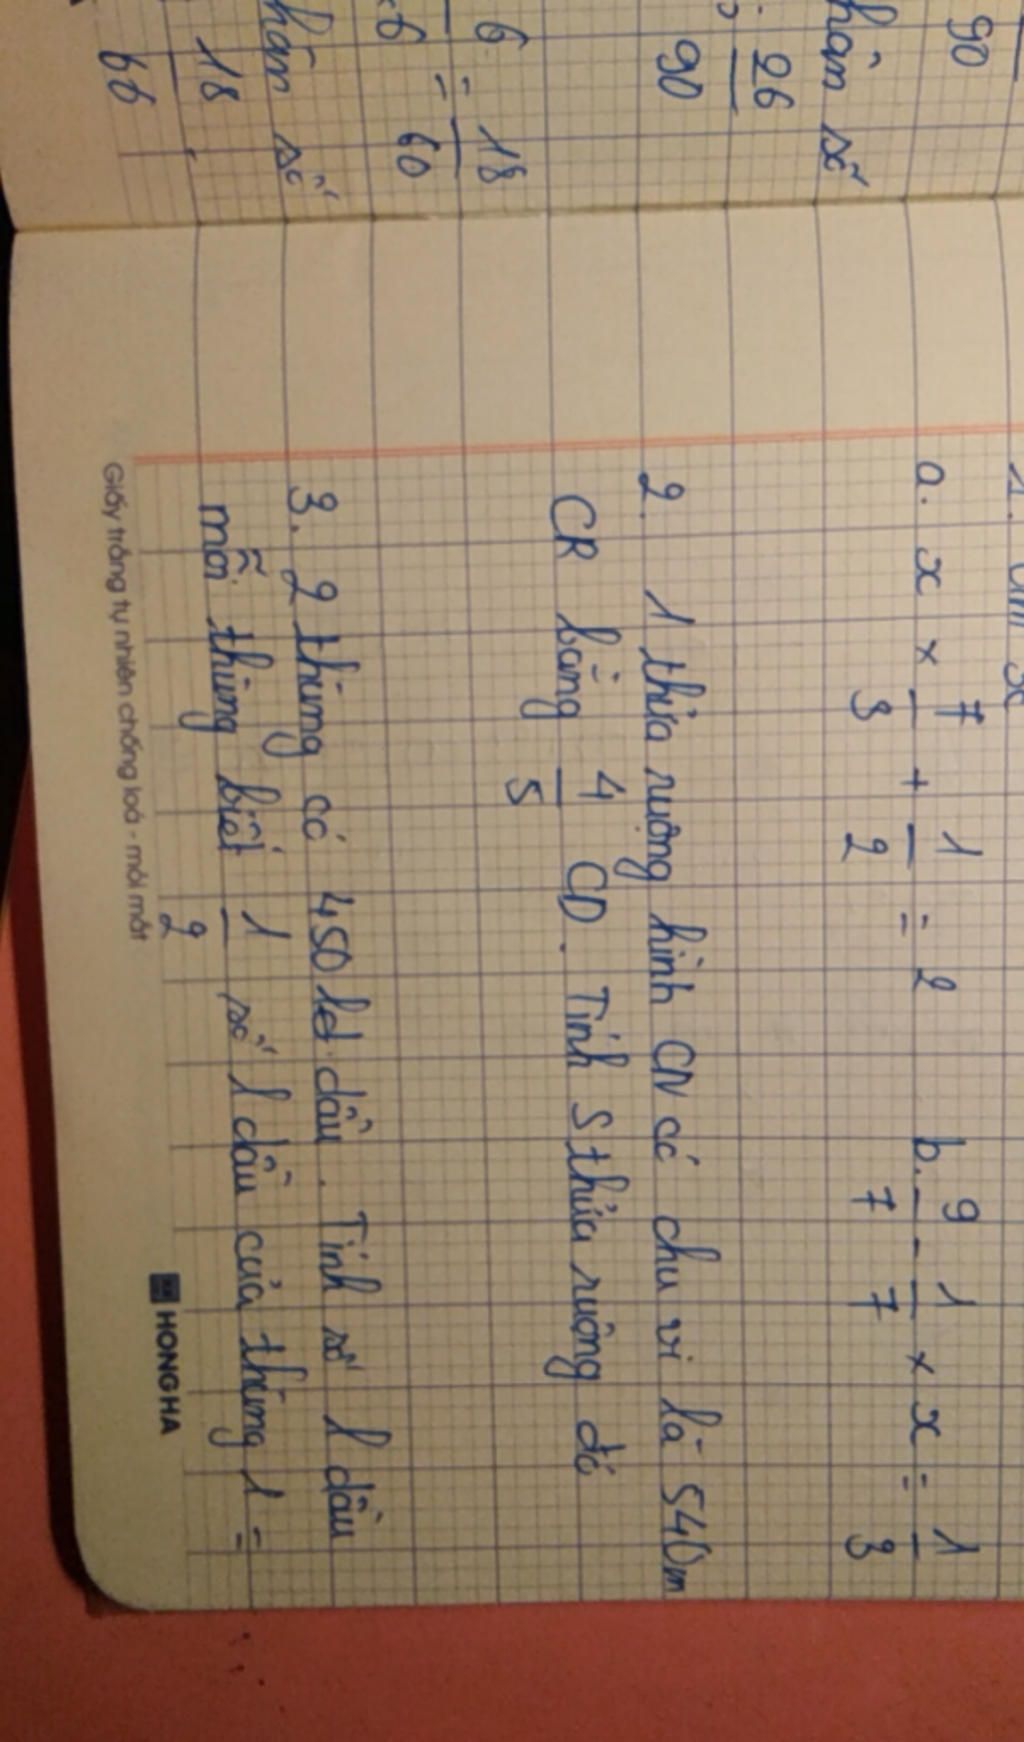 90
hân số
26
90
6 = 18
60
hân số
18
66
1. Tìm x
a. x × 7/3 + 1/2 = 2 b. 9/7 - 1/7 × x = 1/3
2. 1 thửa ruộng hình CN có chu vi là 540m
CR bằng 4/5 CD. Tính S thửa ruộng đó
3. 2 thùng có 450 dầu. Tính số l dầu
mỗi thùng biết 1/2 số l dầu của thùng 1 =
Giấy trắng tự nhiên chống loá - mỏi mắt
HONG HA